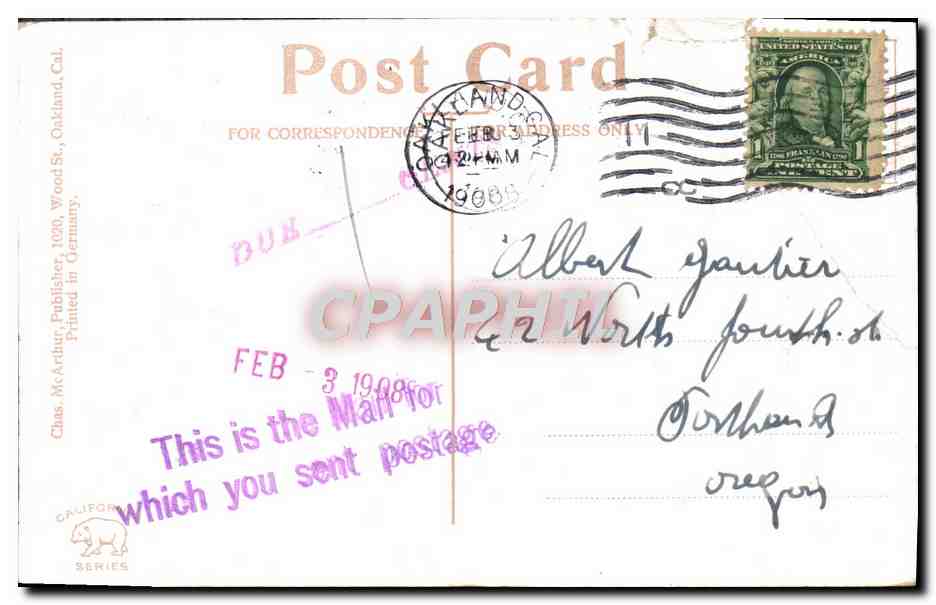 Post Card
FOR CORRESPONDENCE FOR ADDRESS ONLY
OAKLAND, CAL.
FEB 3
2 - PM
1908
SERIES 1902
UNITED STATES OF
AMERICA
1 FRANKLIN 1
POSTAGE
ONE CENT
Chas. McArthur, Publisher, 1020, Wood St., Oakland, Cal.
Printed in Germany.
DUE
CPAPHIL
Albert Gautier
42 North fourth st
Portland
Oregon
FEB - 3 1908
This is the Mail for
which you sent postage
CALIFORNIA
SERIES